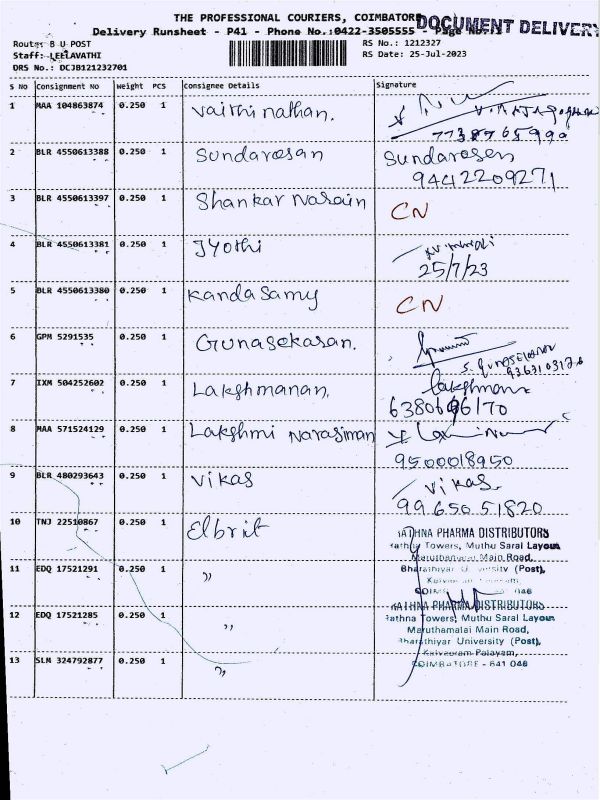 THE PROFESSIONAL COURIERS, COIMBATORE
DOCUMENT DELIVERY
Delivery Runsheet - P41 - Phone No.:0422-3505555 - Page No.:
Route: B U POST
Staff: LEELAVATHI
DRS No.: DCJB121232701
RS No.: 1212327
RS Date: 25-Jul-2023
S NO Consignment No Weight PCS Consignee Details Signature
1 MAA 104863874 0.250 1 Vaithinathan.
7738765990
2 BLR 4550613388 0.250 1 Sundaresan Sundaresen
9442209271
3 BLR 4550613397 0.250 1 Shankar Narain CN
4 BLR 4550613381 0.250 1 Jyothi
25/7/23
5 BLR 4550613380 0.250 1 Kandasamy CN
6 GPM 5291535 0.250 1 Gunasekasan.
S. GUNASEKARAN
7 IXM 504252602 0.250 1 Lakshmanan. Lakshmana
8 MAA 571524129 0.250 1 Lakshmi Narasiman
9500018950
9 BLR 480293643 0.250 1 Vikas Vikas.
99 650 51820
10 TNJ 22510867 0.250 1 Elbrit
RATHNA PHARMA DISTRIBUTORS
Rathna Towers, Muthu Sarai Layout
Maruthamalai Main Road,
Bharathiyar University (Post),
11 EDQ 17521291 0.250 1 "
12 EDQ 17521285 0.250 1 "
RATHNA PHARMA DISTRIBUTORS
Rathna Towers, Muthu Sarai Layout
Maruthamalai Main Road,
Bharathiyar University (Post),
Kalveeram Palayam,
COIMBATORE - 641 046
13 SLM 324792877 0.250 1 "